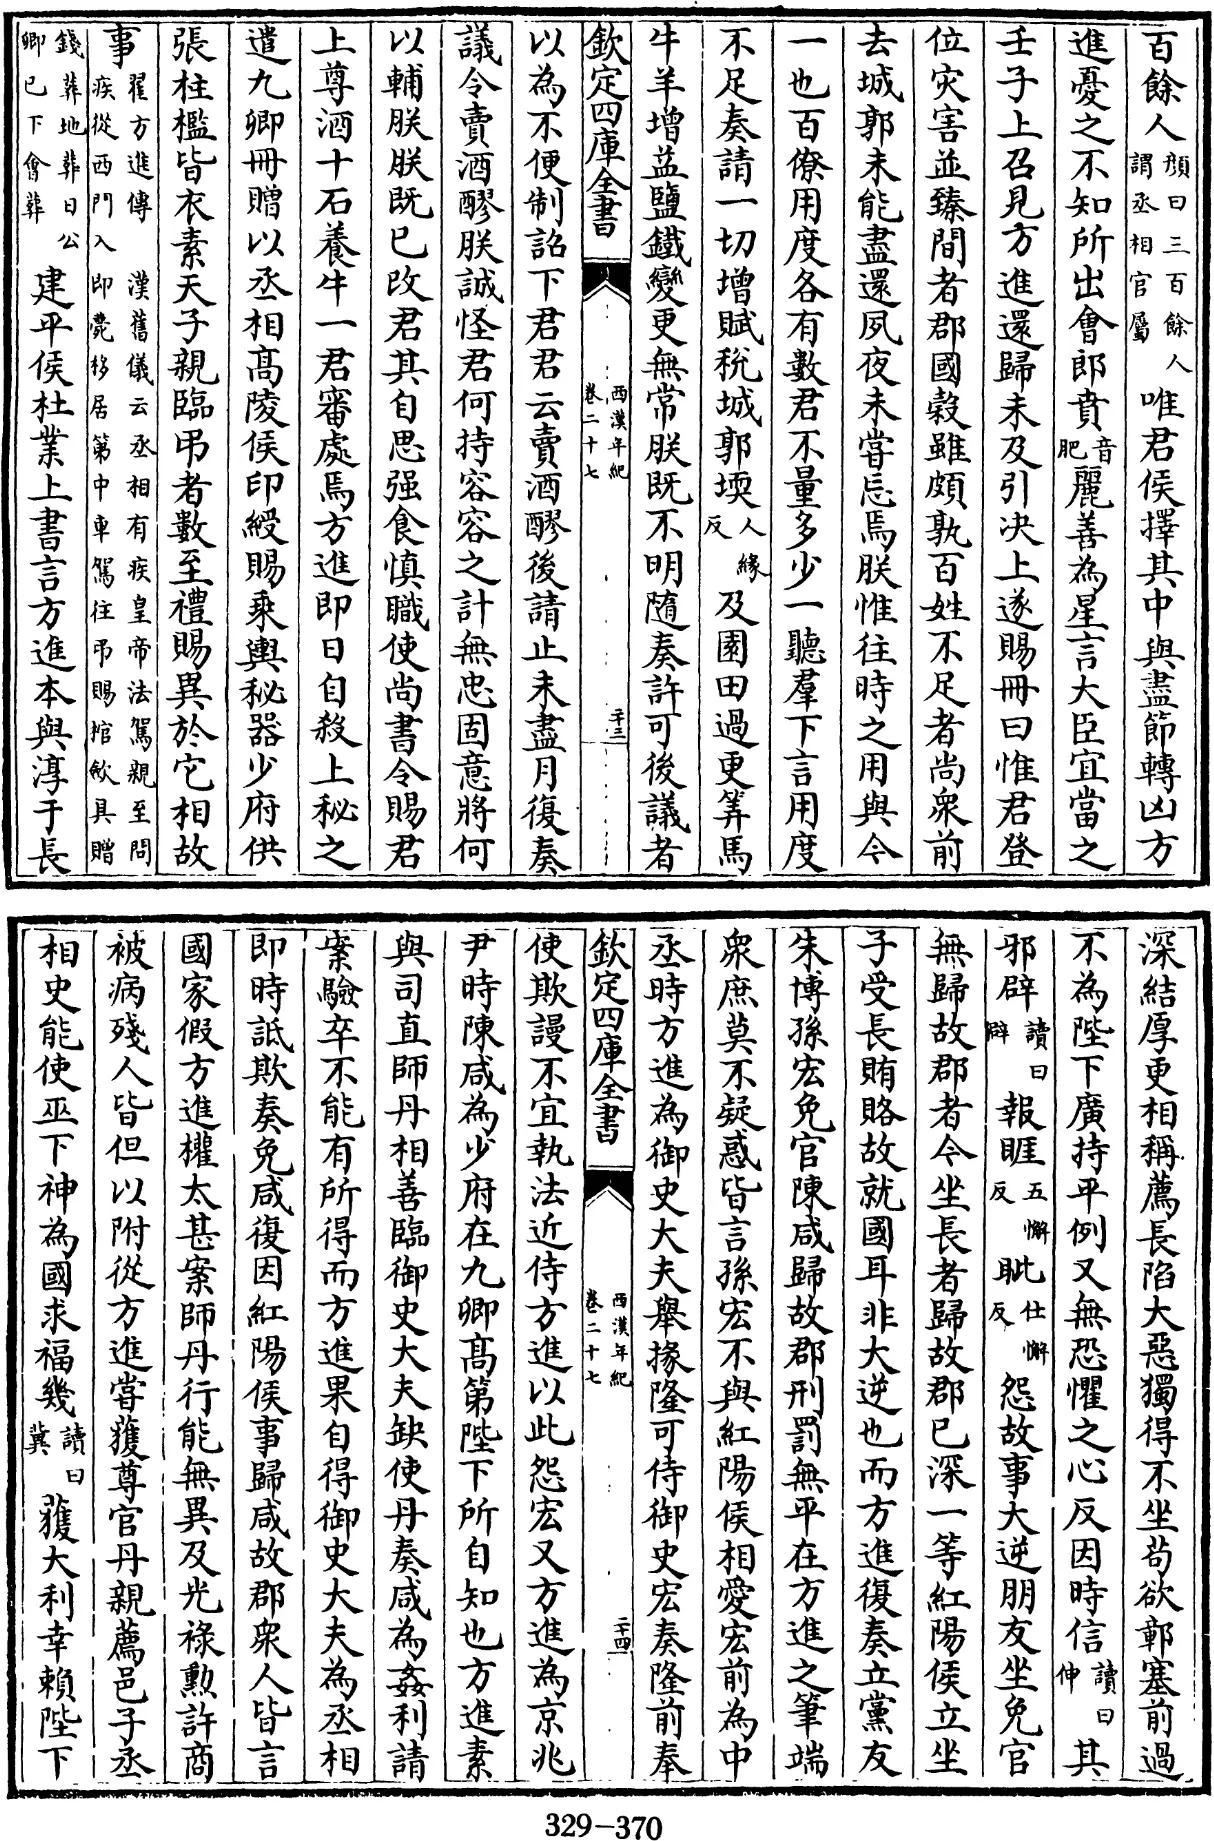 百餘人顔曰三百餘人謂丞相官屬唯君侯擇其中與盡節轉凶方
進憂之不知所出㑹郎賁音肥麗善為星言大臣宜當之
壬子上召見方進還歸未及引決上遂賜冊曰惟君登
位灾害並臻間者郡國榖雖頗孰百姓不足者尚衆前
去城郭未能盡還夙夜未嘗忘焉朕惟往時之用與今
一也百僚用度各有數君不量多少一聽羣下言用度
不足奏請一切增賦稅城郭堧人緣反及園田過更筭馬
牛羊增益鹽鐵變更無常朕既不明随奏許可後議者
欽定四庫全書
西漢年紀
卷二十七
二十三
以為不便制詔下君君云賣酒醪後請止未盡月復奏
議令賣酒醪朕誠怪君何持容容之計無忠固意將何
以輔朕朕既已改君其自思强食慎職使尚書令賜君
上尊酒十石養牛一君審處焉方進即日自殺上秘之
遣九卿冊贈以丞相髙陵侯印綬賜乘輿秘器少府供
張柱檻皆衣素天子親臨弔者數至禮賜異於它相故
事翟方進傳 漢舊儀云丞相有疾皇帝法駕親至問疾從西門入 即薨移居第中車駕往弔賜棺斂具贈
錢葬地葬日公卿已下會葬建平侯杜業上書言方進本與淳于長
深結厚更相稱薦長陷大惡獨得不坐苟欲鄣塞前過
不為陛下廣持平例又無恐懼之心反因時信讀曰伸其
邪辟讀曰僻報睚五懈反眦仕懈反怨故事大逆朋友坐免官
無歸故郡者今坐長者歸故郡已深一等紅陽侯立坐
子受長賄賂故就國耳非大逆也而方進復奏立黨友
朱博孫宏免官陳咸歸故郡刑罰無平在方進之筆端
衆庶莫不疑惑皆言孫宏不與紅陽侯相愛宏前為中
丞時方進為御史大夫舉掾隆可侍御史宏奏隆前奉
欽定四庫全書
西漢年紀
卷二十七
二十四
使欺謾不宜執法近侍方進以此怨宏又方進為京兆
尹時陳咸為少府在九卿髙第陛下所自知也方進素
與司直師丹相善臨御史大夫缺使丹奏咸為姦利請
案驗卒不能有所得而方進果自得御史大夫為丞相
即時詆欺奏免咸復因紅陽侯事歸咸故郡衆人皆言
國家假方進權太甚案師丹行能無異及光祿勲許商
被病殘人皆但以附從方進嘗獲尊官丹親薦邑子丞
相史能使巫下神為國求福幾讀曰冀獲大利幸賴陛下
329-370